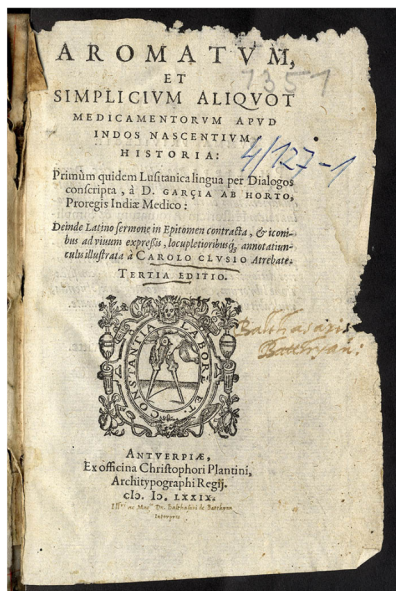 AROMATVM,
ET
SIMPLICIVM ALIQVOT
MEDICAMENTORVM APVD
INDOS NASCENTIVM
HISTORIA:
1351
4/127-1
Primùm quidem Lusitanica lingua per Dialogos
conscripta, à D. GARÇIA AB HORTO,
Proregis Indiæ Medico:
Deinde Latino sermone in Epitomen contracta, & iconi-
bus ad viuum expressis, locupletioribusq́; annotatiun-
culis illustrata à CAROLO CLVSIO Atrebate.
TERTIA EDITIO.
CONSTANTIA LABORE ET
Balthasaris
Batthyani
ANTVERPIÆ,
Ex officina Christophori Plantini,
Architypographi Regij.
cIↄ. Iↄ. LXXIX.
Dn. Balthasaris de Batthyan